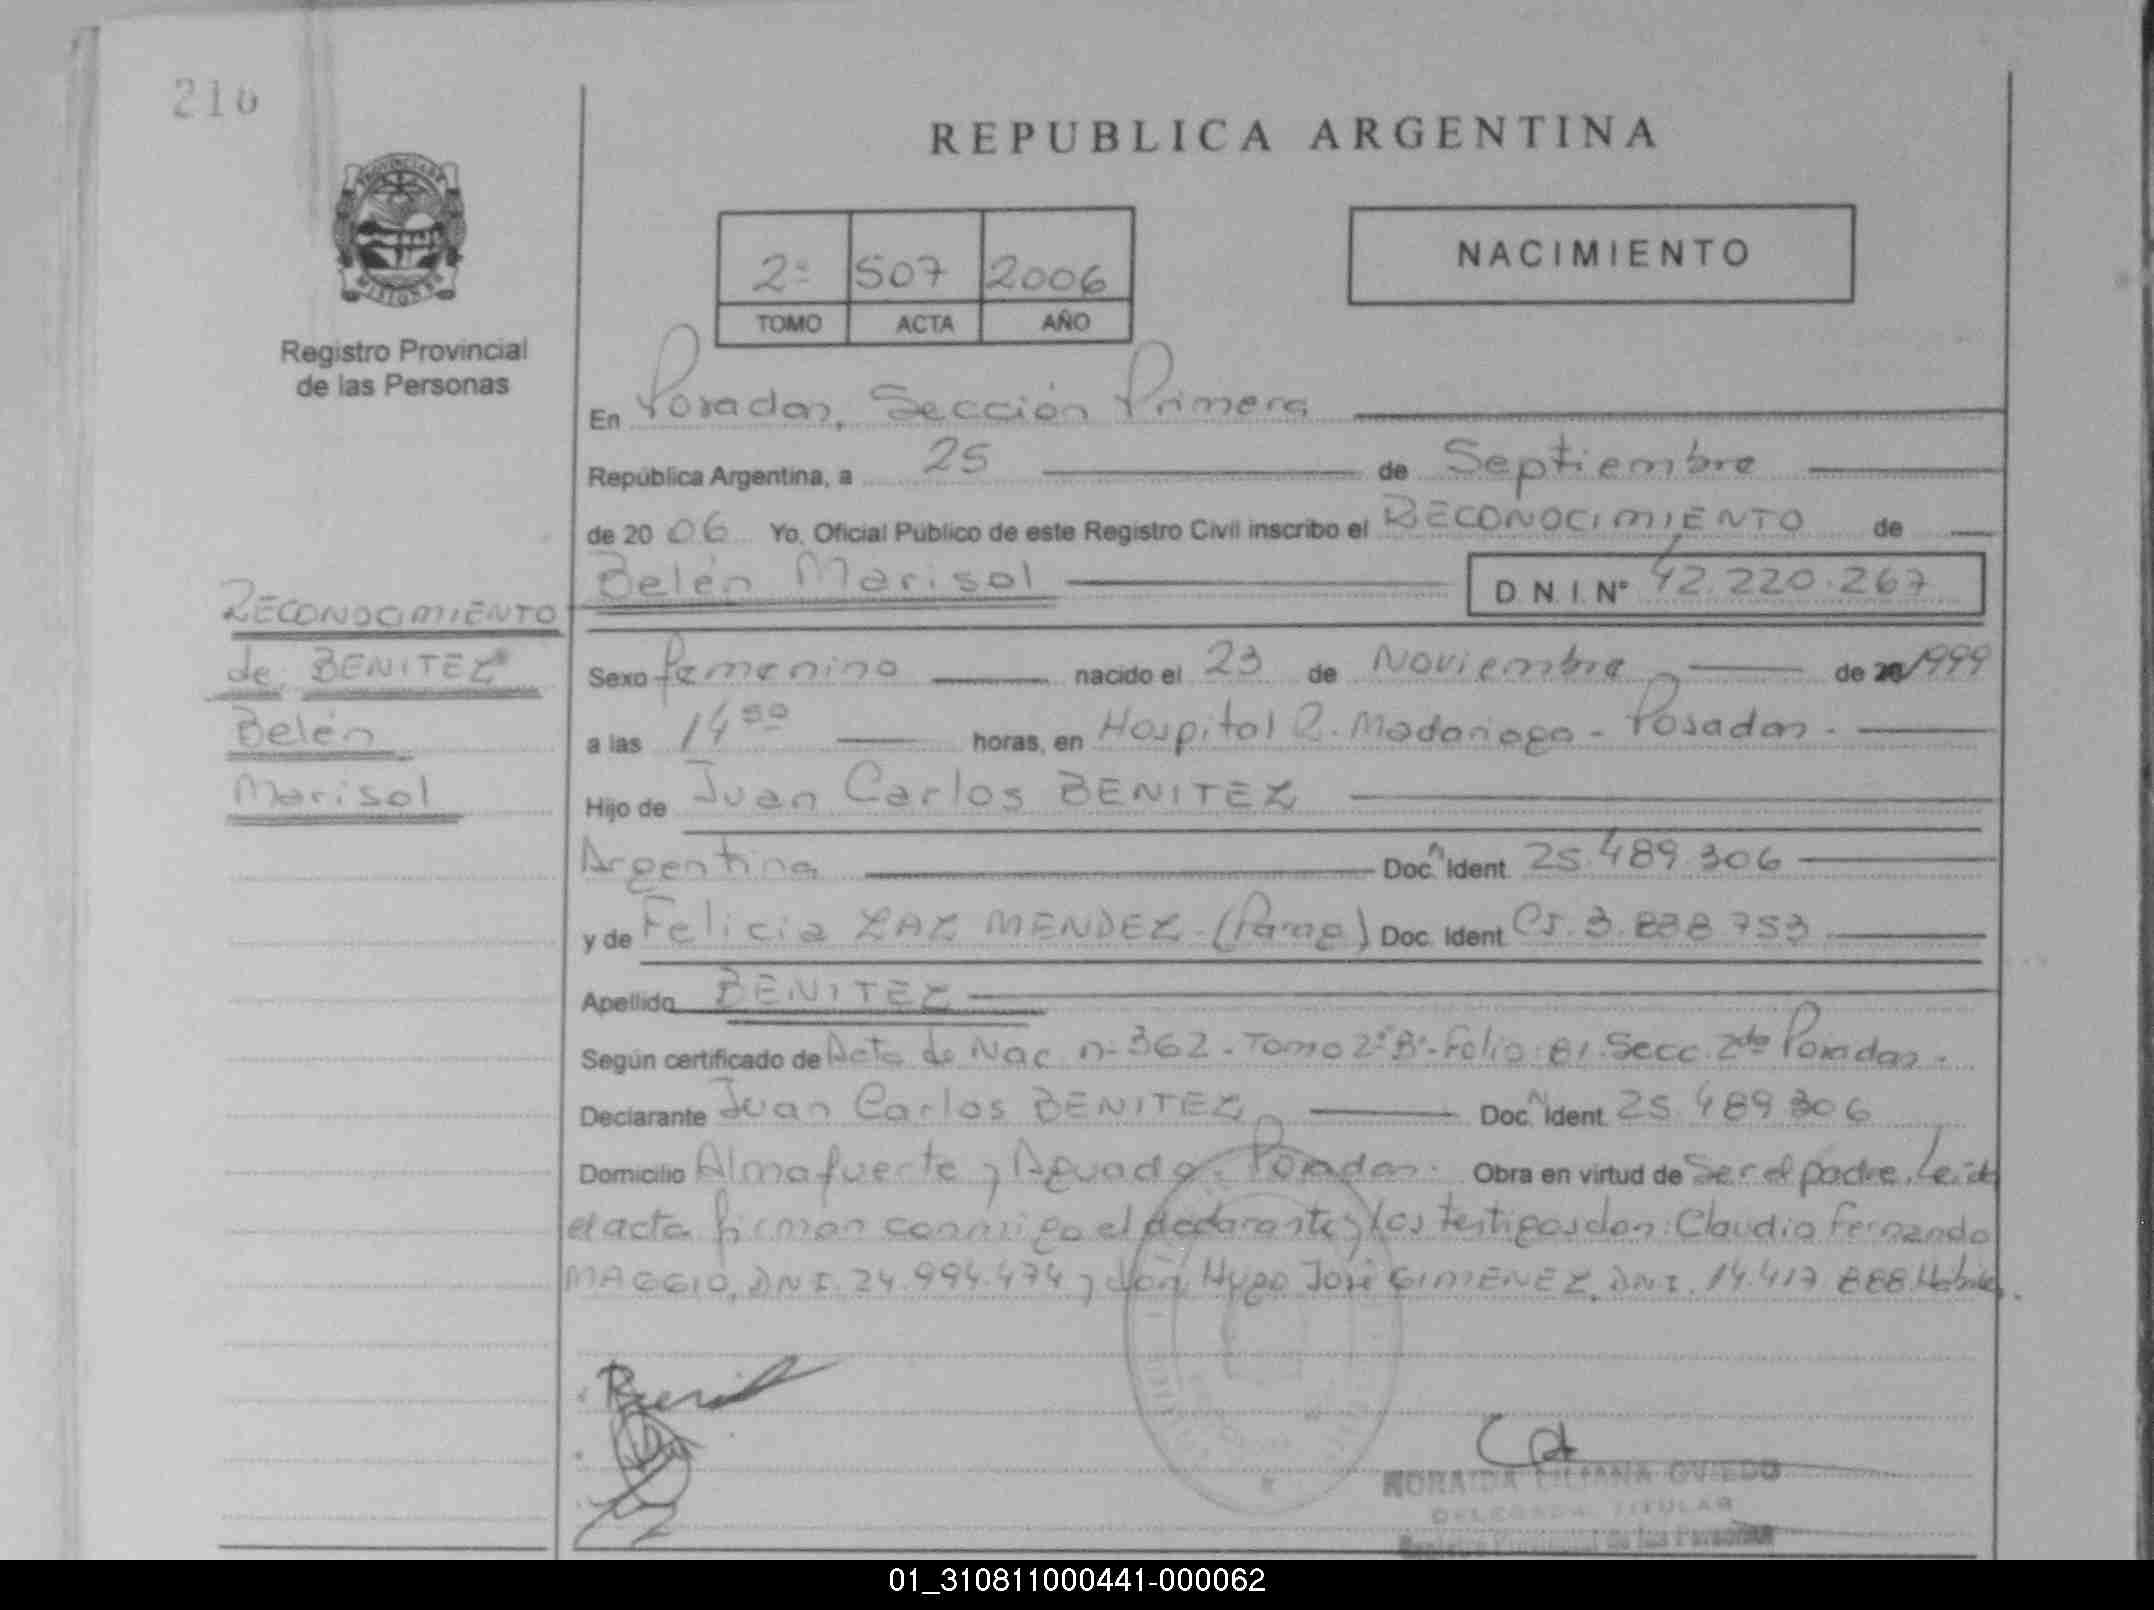 216
REPUBLICA ARGENTINA
2º 507 2006
TOMO ACTA AÑO
NACIMIENTO
PROVINCIA DE MISIONES
Registro Provincial
de las Personas
En Posadas, Sección Primera
República Argentina, a 25 de Septiembre
de 2006 Yo, Oficial Público de este Registro Civil inscribo el RECONOCIMIENTO de
Belén Marisol D.N.I. Nº 42.220.267
RECONOCIMIENTO
de BENITEZ
Belén
Marisol
Sexo femenino nacido el 23 de Noviembre de 1999
a las 14 50 horas, en Hospital R. Madariaga - Posadas.
Hijo de Juan Carlos BENITEZ
Argentina Doc. Ident. 25.489.306
y de Felicia ZAZ MENDEZ (Parag) Doc. Ident. CI. 3.838.753
Apellido BENITEZ
Según certificado de Acta de Nac. n- 362 - Tomo 2º B - Folio 81. Secc. 2da Posadas.
Declarante Juan Carlos BENITEZ Doc. Ident. 25.489.306
Domicilio Almafuerte y Aguado. Posadas. Obra en virtud de Ser el padre. Leida
el acta firman conmigo el declarante y los testigos don: Claudio Fernando
MAGGIO, DNI. 24.994.474 y don Hugo José GIMENEZ, DNI. 14.417.888.
NORAIDA LILIANA OVIEDO
DELEGADA TITULAR
Registro Provincial de las Personas
01_310811000441-000062